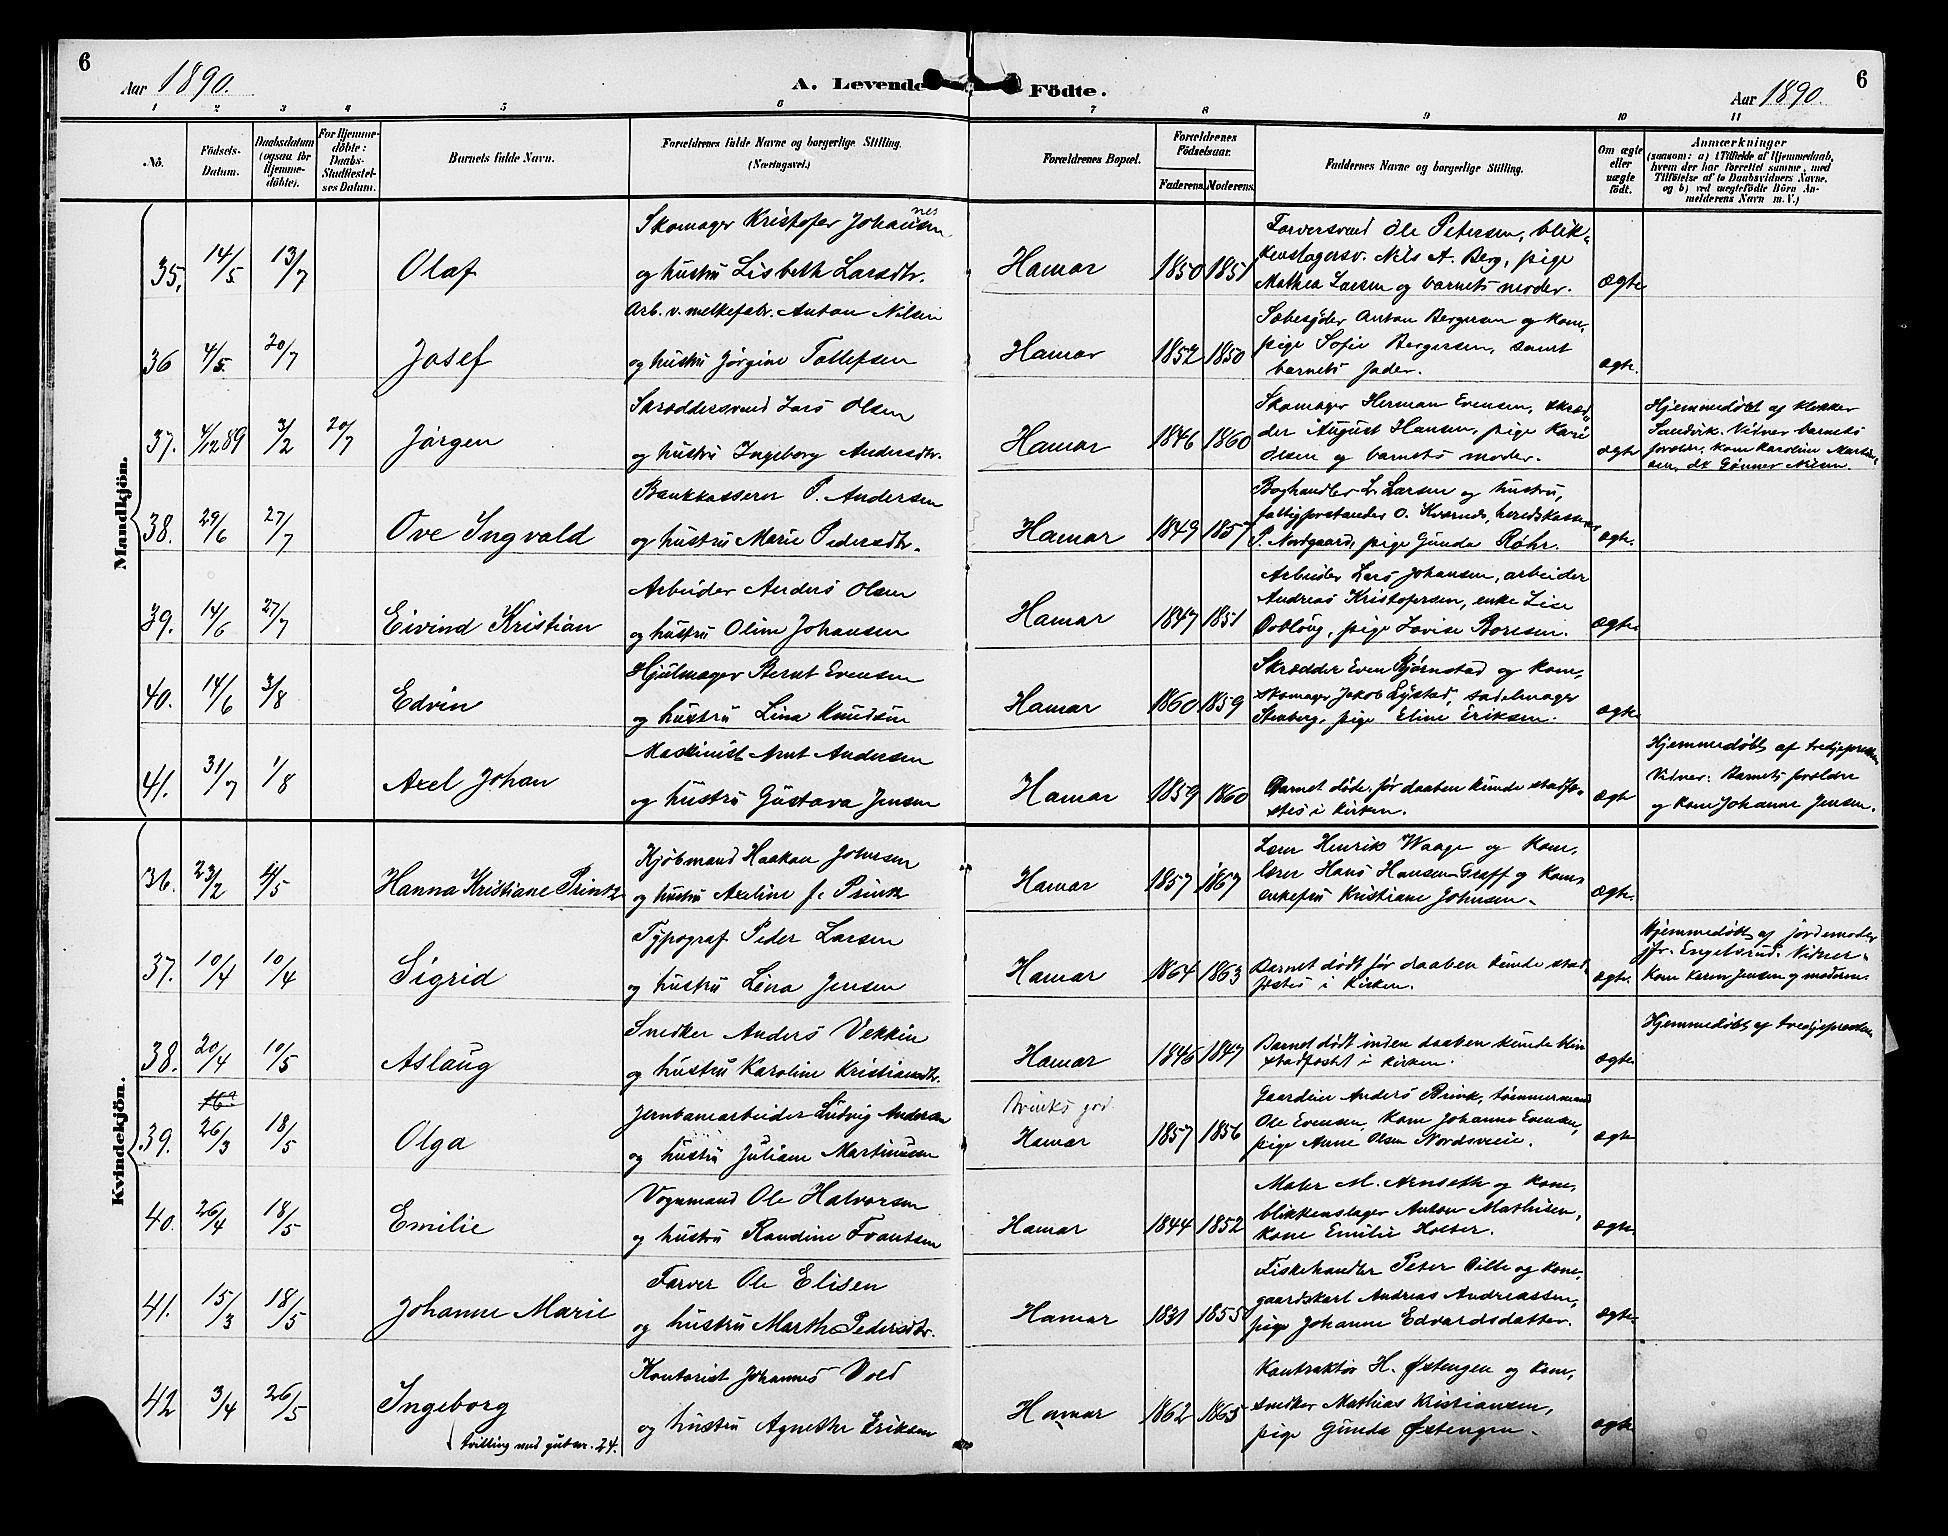 6
Aar 1890.
A. Levende Födte.
Aar 1890.
6
1 2 3 4 5 6 7 8 9 10 11
No.
Födsels-
Datum.
Daabsdatum
(ogsaa for
Hjemme-
döbte).
For Hjemme-
döbte:
Daabs-
Stadfæstel-
ses Datum.
Barnets fulde Navn.
Forældrenes fulde Navne og borgerlige Stilling.
(Næringsvei.)
Forældrenes Bopæl.
Forældrenes
Födselsaar.
Faderens. Moderens.
Faddernes Navne og borgerlige Stilling.
Om ægte
eller
uægte
födt.
Anmærkninger
(saasom: a) i Tilfælde af Hjemmedaab,
hvem der har forrettet samme, med
Tilföielse af to Daabsvidners Navne,
og b) ved uægtefödte Börn An-
melderens Navn m. V.)
Mandkjön.
35. 14/5 13/7 Olaf
Skomager Kristofer Johannesen
og hustru Lisbeth Larsdtr.
Hamar 1850 1851
Farversvend Ole Petersen, blik-
kenslagersv. Nils A. Berg, pige
Mathea Larsen og barnets moder.
ægte
36 4/5. 20/7 Josef
Arb. v. melkefabr. Anton Nilsen
og hustru Jørgine Tollefsen
Hamar 1852 1850
Sæbesyder Anton Bergersen og kone,
pige Sofie Bergersen, samt
barnets fader.
ægte.
37. 4/12 89 3/2 20/7 Jørgen
Skræddersvend Lars Olsen
og hustru Ingeborg Andersdtr.
Hamar 1846 1860
Skomager Herman Evensen, skræd-
der August Hansen, pige Kari
Olsen og barnets moder.
ægte
Hjemmedøbt af klokker
Sandvik. Vidner barnets
forældre, kone Karoline
38. 29/6 27/7 Ove Ingvald
Bankkasserer P. Andersen
og hustru Marie Pedersdtr.
Hamar 1849 1857
Boghandler L. Larsen og hustru,
fattigforstander O. Kværnes, herredskasserer
P. Nordgaard, pige Gunda Røhr.
ægte.
39. 14/6 27/7 Eivind Kristian
Arbeider Anders Olsen
og hustru Oline Johansen
Hamar 1847 1851
Arbeider Lars Johansen, arbeider
Andreas Kristofersen, enke Lise
Dobloug, pige Lovise Boresen.
ægte
40. 14/6 3/8 Edvin
Hjulmager Bernt Evensen
og hustru Lina Knudsen
Hamar 1860 1859
Skrædder Even Bjørnstad og kone,
skomager Jakob Lystad, sadelmager
Stenberg, pige Eline Eriksen.
ægte
41. 31/7 1/8 Axel Johan
Maskinist Arnt Andersen
og hustru Gustava Jensen
Hamar 1859 1860
Barnet døde, før daaben kunde stadfæ-
stes i kirken.
ægte
Hjemmedøbt af
Vidner: Barnets forældre
og kone Johanne Jensen.
Kvindekjön.
36. 23/2 4/5 Hanna Kristiane Printz
Kjøbmand Haakon Johnsen
og hustru Axeline f. Printz
Hamar 1857 1867
Lærer Henrik Waage og kone,
lærer Hans Hansen Greff og kone,
enkefru Kristiane Johnsen.
ægte.
37. 10/4 10/4 Sigrid
Typograf Peder Larsen
og hustru Lina Jensen
Hamar 1864 1863
Barnet dødt før daaben kunde stad-
fæstes i kirken.
ægte.
Hjemmedøbt af jordemoder
jfr. Engelsrud. Vidner
kone Karen Jensen og moderen.
38. 20/4 10/5 Aslaug
Snedker Anders Vekkin
og hustru Karoline Kristiansdtr.
Hamar 1846 1847
Barnet dødt inden daaben kunde blive
stadfæstet i kirken.
ægte
Hjemmedøbt af
39. 26/3 18/5 Olga
Jernbanearbeider Ludvig Andersen
og hustru Juliane Martinusen
Brinks grd.
Hamar 1857 1856
Gaardeier Anders Brink, tømmermand
Ole Evensen, kone Johanne Evensen,
pige Anne Olsen Nordsveie.
ægte
40. 26/4 18/5 Emilie
Vognmand Ole Halvorsen
og hustru Randine Frantsen
Hamar 1844 1852
Maler M. Arnseth og kone,
blikkenslager Anton Mathisen,
kone Emilie Holter.
ægte.
41. 15/3 18/5 Johanne Marie
Farver Ole Elisen
og hustru Marthe Pedersdtr.
Hamar 1831 1855
Fiskehandler Peter Dille og kone,
gaardskarl Andreas Andreassen,
pige Johanne Edvardsdatter.
ægte.
42 3/4 26/5 Ingeborg
tvilling med gut nr. 24.
Kontorist Johannes Vold
og hustru Agnethe Eriksen
Hamar 1862 1865
Kontraktør H. Østengen og kone,
snedker Mathias Kristiansen,
pige Gunda Østengen.
ægte